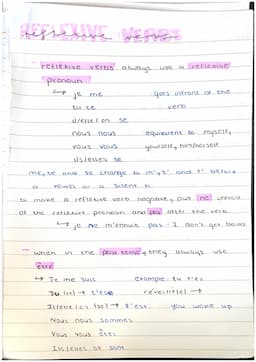 REFLEXIVE VERBS
reflexive verbs
reflexive verbs always use a reflexive
pronoun
↳ je me goes infront of the
tu te verb
il/elle/on se
nous nous equivalent to myself,
vous vous yourself, him/herself
ils/elles se
me, te and se change to m', t' and s' before
a vowel or a silent h
to make a reflexive verb negative, put ne infront
of the reflexive pronoun and pas after the verb
↳ je ne m'ennuie pas - I don't get bored
— when in the past tense, they always use
être
↳ Je me suis example: tu t'es
Tu (te) → t'es réveillé(e) →
Il/elle/on (se) → s'est you woke up
Nous nous sommes
Vous vous êtes
Ils/elles se sont